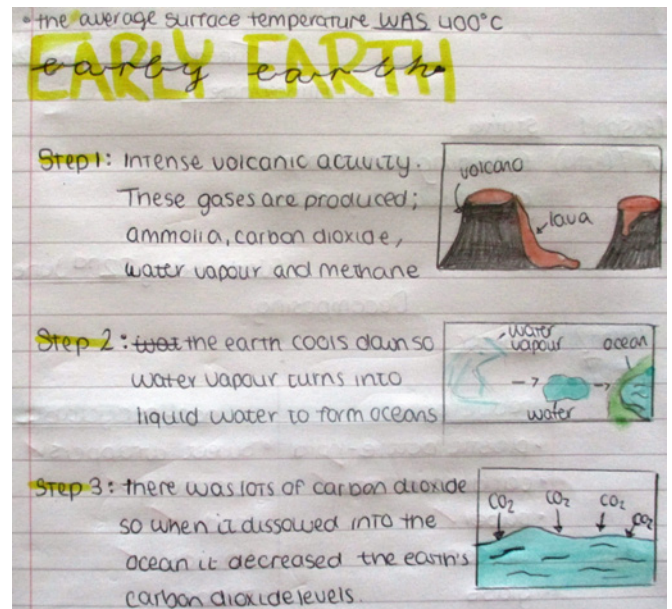 • the average surface temperature WAS 400°C
EARLY EARTH
early earth
Step 1: Intense volcanic activity.
These gases are produced;
ammolia, carbon dioxide,
water vapour and methane
volcano
lava
Step 2: the earth cools down so
water vapour turns into
liquid water to form oceans
water
vapour
ocean
water
Step 3: there was lots of carbon dioxide
so when it dissowed into the
ocean it decreased the earth's
carbon dioxide levels.
CO2 CO2 CO2 CO2